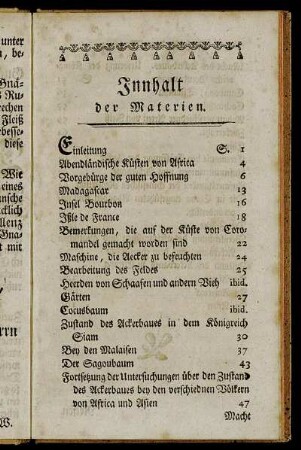 unter
n, be-
Gnä-
s Ru-
rechen
Fleiß
besse-
diese
Wie
eines
nsche
cklich
llenz
Gna-
t mit
rrn
W.
Innhalt
der Materien.
Einleitung S. 1
Abendländische Küsten von Africa 4
Vorgebürge der guten Hoffnung 6
Madagascar 13
Insel Bourbon 16
Isle de France 18
Bemerkungen, die auf der Küste von Coro-
mandel gemacht worden sind 22
Maschine, die Aecker zu befeuchten 24
Bearbeitung des Feldes 25
Heerden von Schaafen und andern Vieh ibid.
Gärten 27
Cocusbaum ibid.
Zustand des Ackerbaues in dem Königreich
Siam 30
Bey den Malaisen 37
Der Sagoubaum 43
Fortsetzung der Untersuchungen über den Zustand
des Ackerbaues bey den verschiednen Völkern
von Africa und Asien 47
Macht